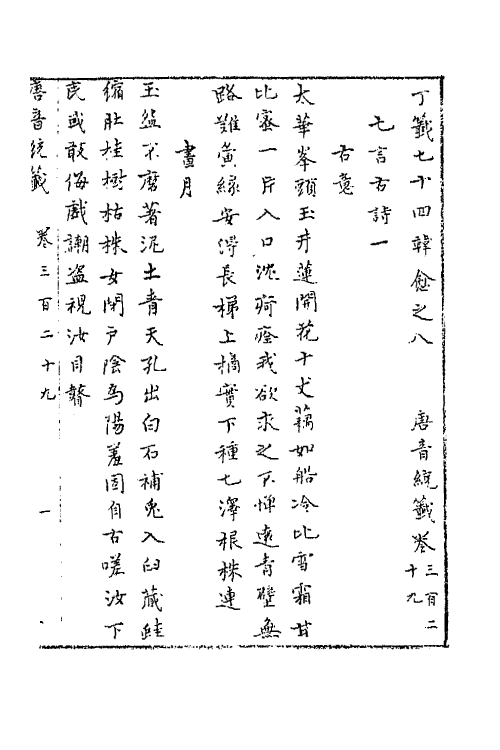 丁籤七十四韓愈之八　唐音統籤卷三百二十九
七言古詩一
古意
太華峯頭玉井蓮開花十丈藕如船冷比雪霜甘
比蜜一片入口沈痾痊我欲求之不憚遠青壁無
路難夤緣安得長梯上摘實下種七澤根株連
晝月
玉盌不磨著泥土青天孔出白石補兔入臼藏蛙
縮肚桂樹枯株女閉戶陰為陽羞固自古嗟汝下
民或敢侮戲謿盜視汝目瞽
唐音統籤　卷三百二十九　一